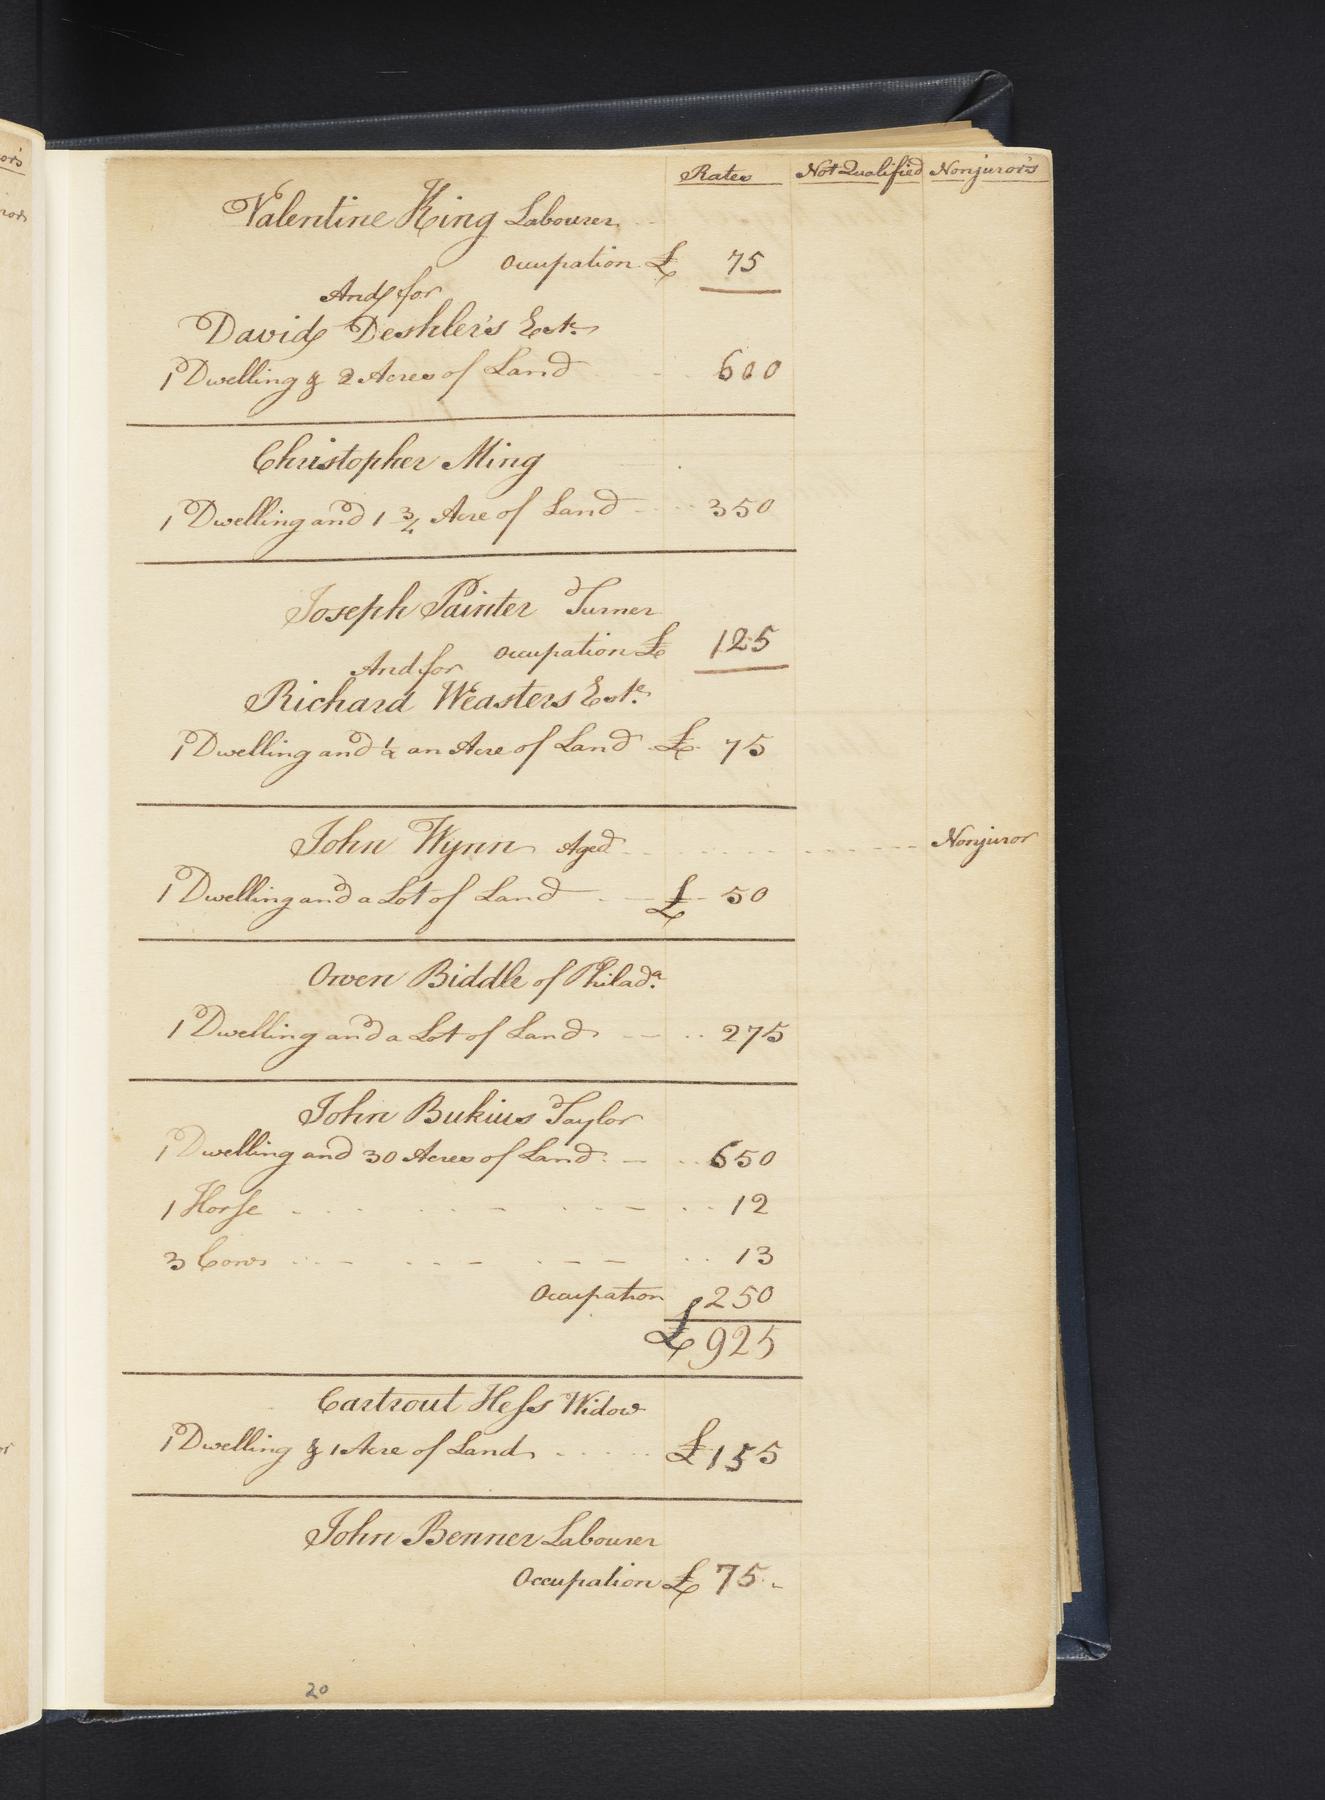 Rates Not Qualified Nonjuror's
Valentine King Labourer
Occupation £ 75
And for
David Deshler's Este
1 Dwelling & 2 Acres of Land 600
Christopher Ming
1 Dwelling and 1 3/4 Acre of Land 350
Joseph Painter Turner
Occupation £ 125
And for
Richard Weasters Este
1 Dwelling and 1/2 an Acre of Land £ 75
John Wynn Aged Nonjuror
1 Dwelling and a Lot of Land £ 50
Owen Biddle of Philada.
1 Dwelling and a Lot of Land 275
John Bukius Taylor
1 Dwelling and 30 Acres of Land 650
1 Horse 12
3 Cows 13
Occupation 250
£ 925
Cartrout Hess Widow
1 Dwelling & 1 Acre of Land £ 155
John Benner Labourer
Occupation £ 75
20